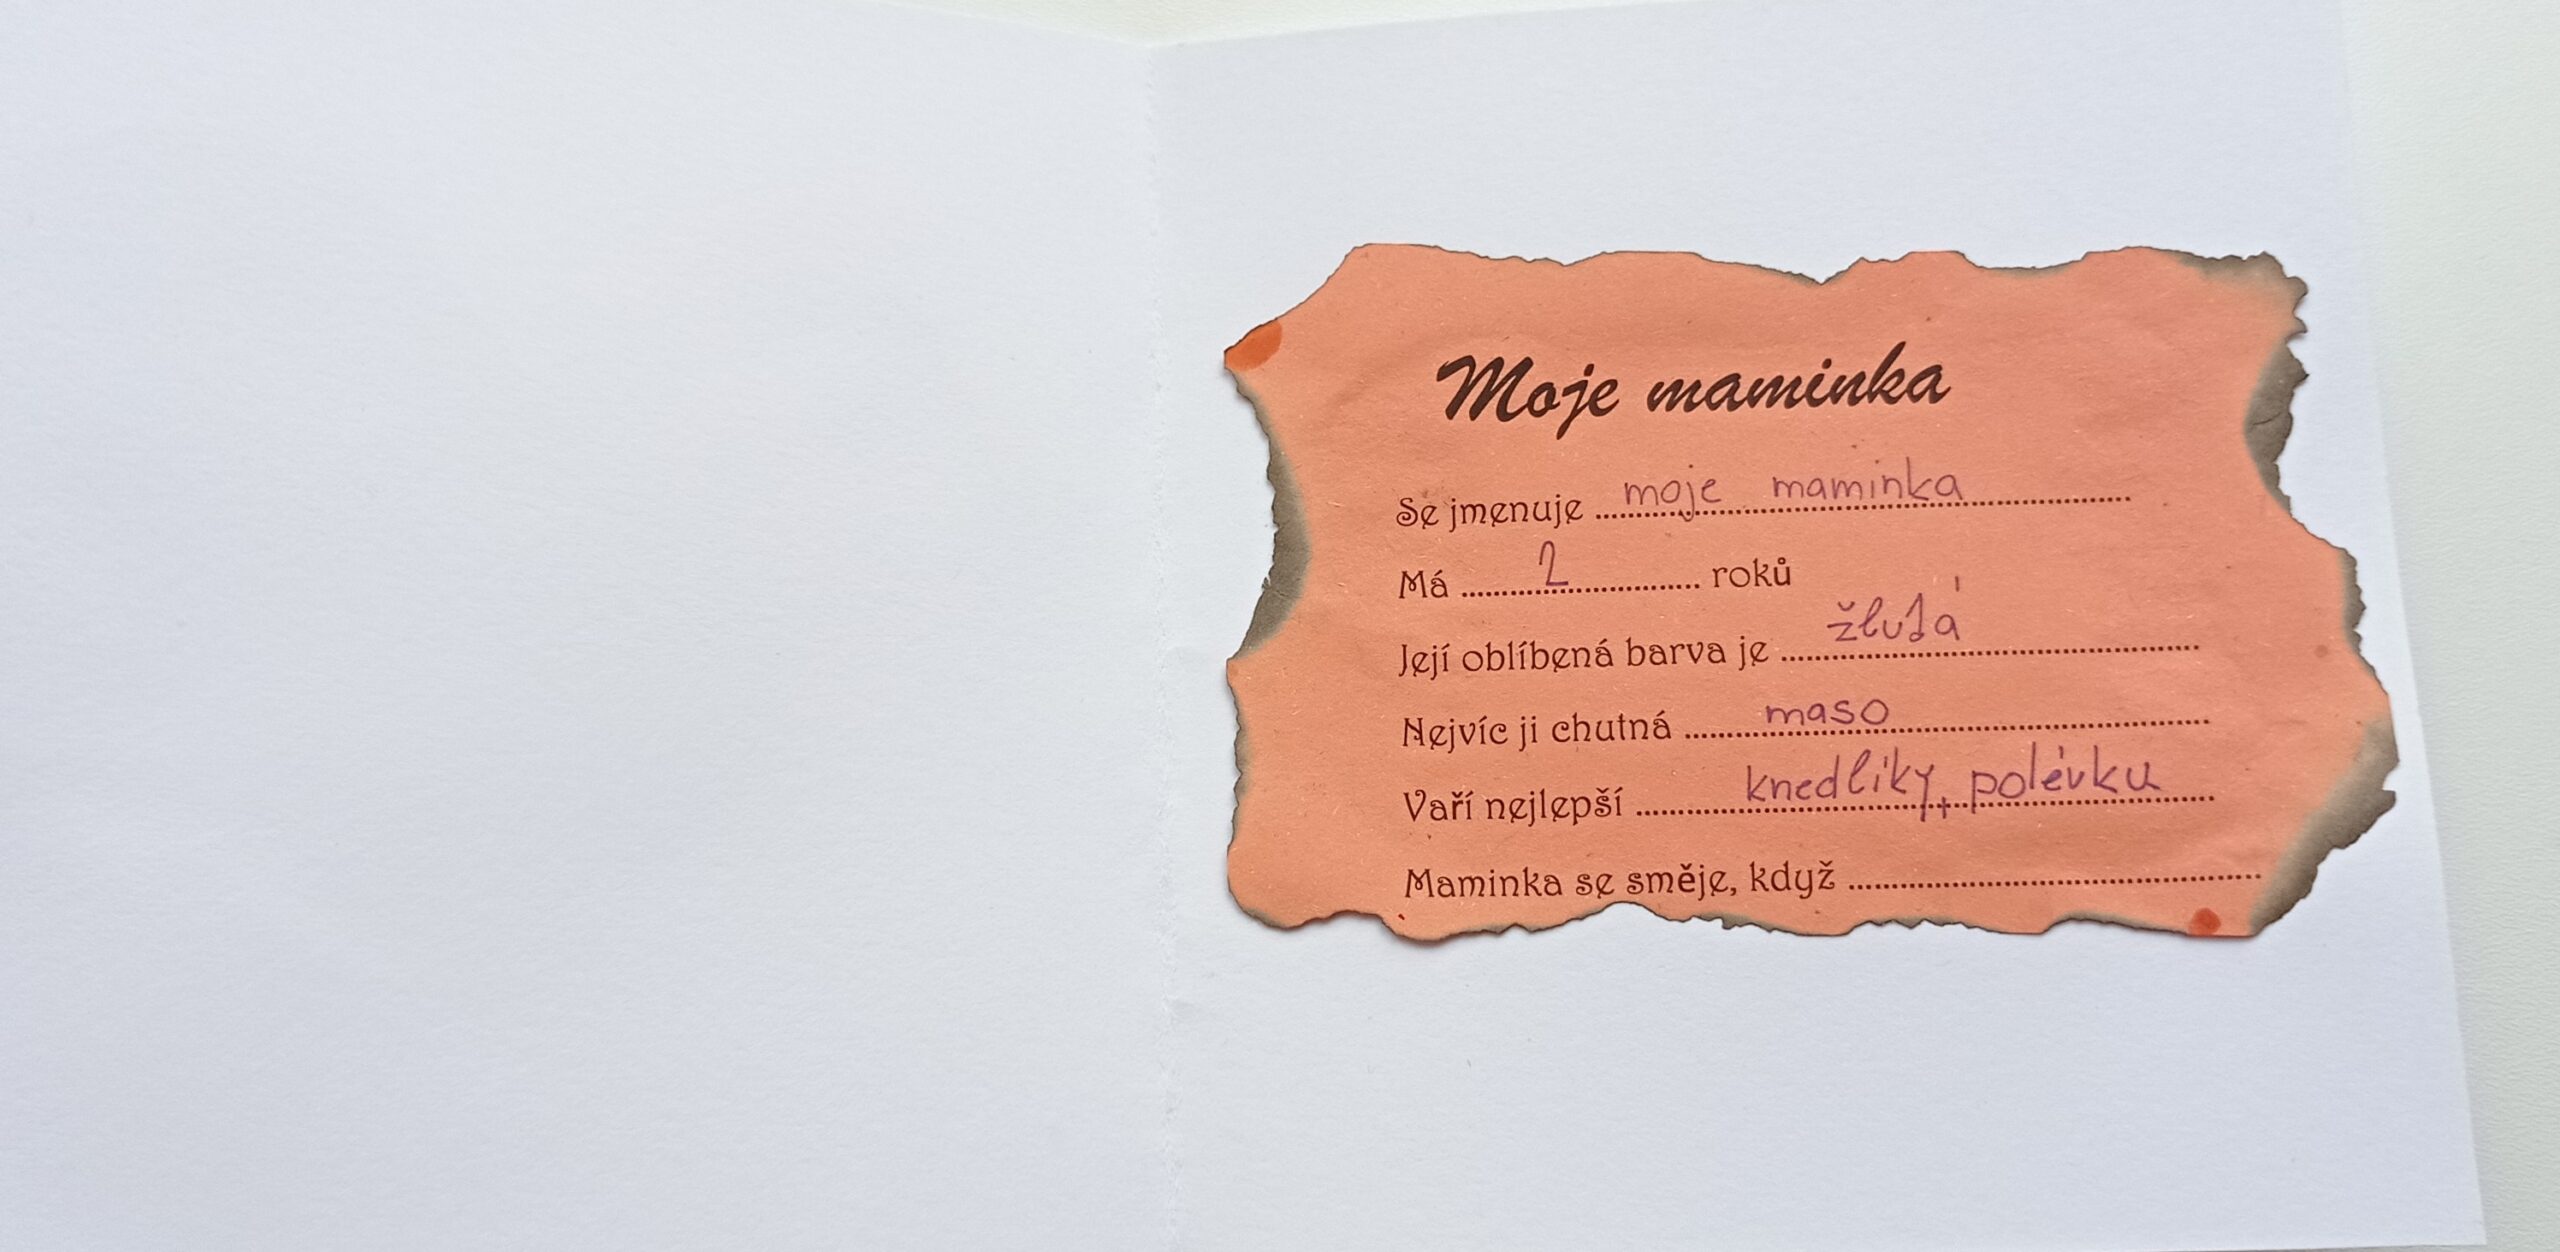 Moje maminka
Se jmenuje moje maminka
Má 2 roků
Její oblíbená barva je žlutá
Nejvíc ji chutná maso
Vaří nejlepší knedlíky, polévku
Maminka se směje, když